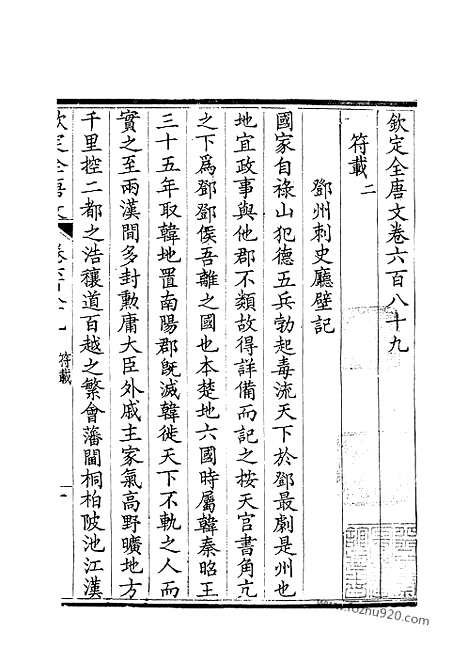 欽定全唐文卷六百八十九
符載二
鄧州刺史廳壁記
國家自祿山犯德五兵勃起毒流天下於鄧最劇是州也
地宜政事與他郡不類故得詳備而記之按天官書角亢
之下為鄧鄧侯吾離之國也本楚地六國時屬韓秦昭王
三十五年取韓地置南陽郡既滅韓徙天下不軌之人而
實之至兩漢間多封勳庸大臣外戚主家氣高野曠地方
千里控二都之浩穰道百越之繁會藩閫桐柏陂池江漢
欽定全唐文
符載
一
www.fozhu920.com